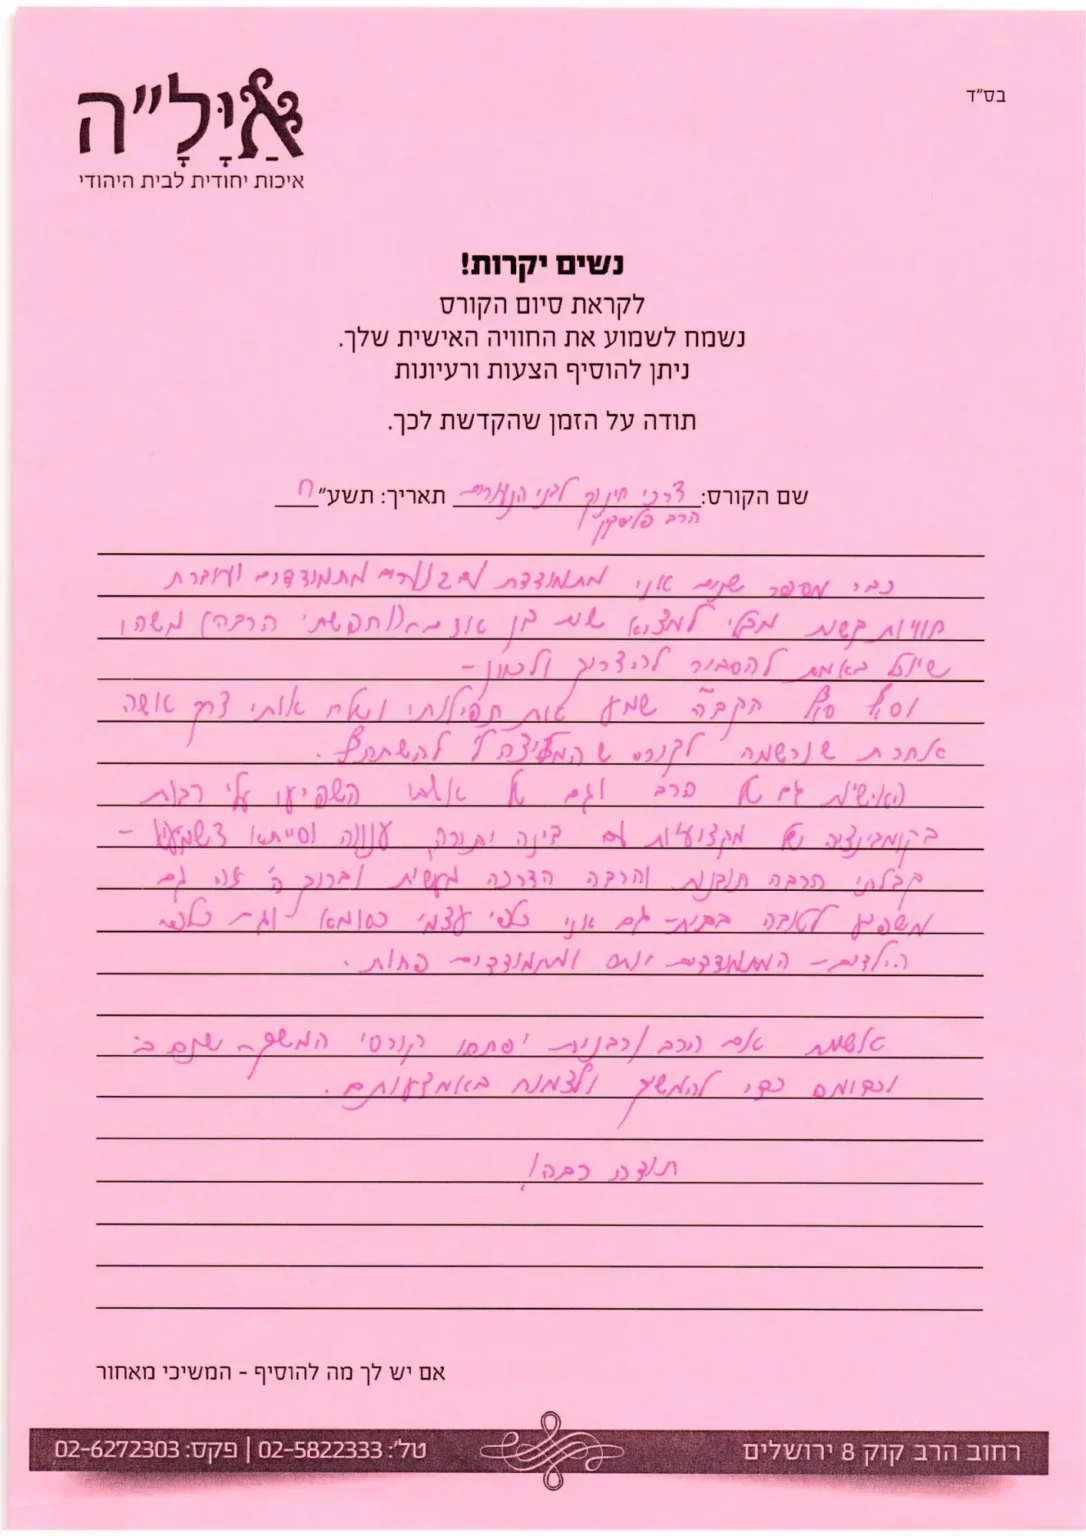 בס"ד
אַיָּלָ"ה
איכות יחודית לבית היהודי
נשים יקרות!
לקראת סיום הקורס
נשמח לשמוע את החוויה האישית שלך.
ניתן להוסיף הצעות ורעיונות
תודה על הזמן שהקדשת לכך.
שם הקורס: דרכי חינוך לבני הנעורים תאריך: תשע"ח
הרב
כבר מספר שנים אני מתמודדת עם נערים מתמודדים ועוברת
חוויות קשות מבלי למצוא שום בן אדם (וחפשתי הרבה) משהו
שיוכל באמת להסביר להדריך ולכוון -
וסוף סוף הקב"ה שמע את תפילותי ושלח אותי דרך אשה
אחרת שנרשמה לקורס והמליצה לי להשתתף.
האישיות גם של הרב וגם של השפיעו עלי רבות
בקומבינציה של מקצועיות עם בינה יתורה, ענווה וסייתא דשמיא -
קבלתי הרבה תובנות והרבה הדרכה מעשית וברוך ה' זה גם
משפיע לטובה בבית - גם אני כלפי עצמי כאמא וגם כלפי
הילדים - המתמודדים אתם ומתמודדים פחות.
אשמח אם הרב ורבנית יפתחו קורסי המשך
וכדומה כדי להמשיך ולצמוח באמצעותם.
תודה רבה!
אם יש לך מה להוסיף - המשיכי מאחור
רחוב הרב קוק 8 ירושלים
טל': 02-5822333 | פקס: 02-6272303